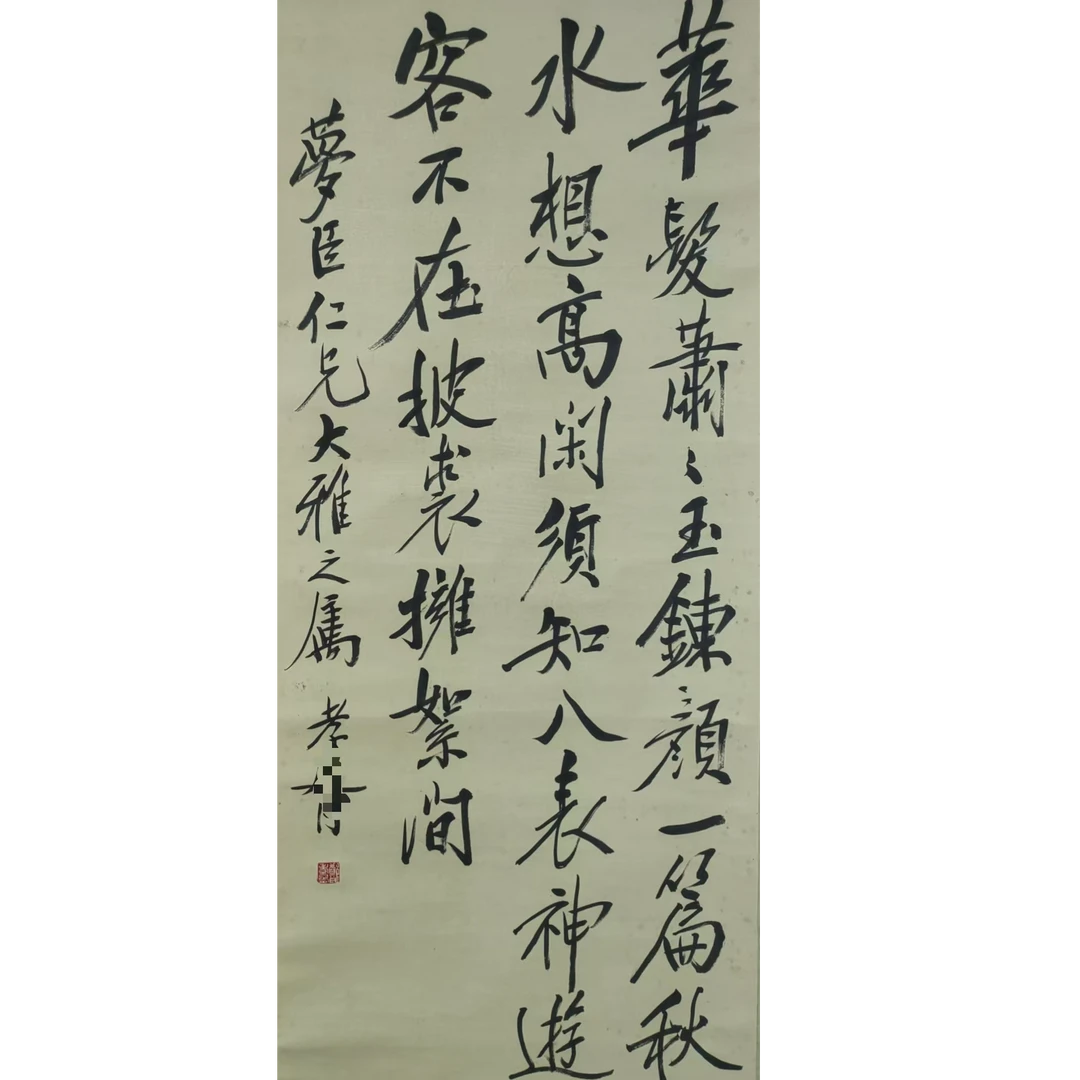 華髮蕭〻玉鍊顏一篇秋
水想高閑須知八表神遊
客不在披裘擁絮間
夢臣仁兄大雅之属 孝胥